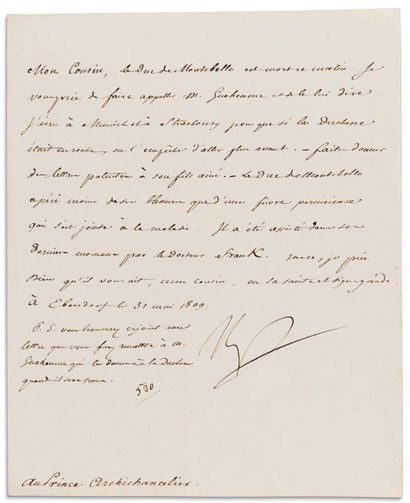 Mon Cousin, le Duc de Montebello est mort ce matin. Je
vous prie de faire appeller M. Guéheneuc et de lui dire
j'écris à Munich et à Strasbourg pour que si la Duchesse
était en route, on l'empêche d'aller plus avant. - faites donner
des lettres patentes à son fils ainé. - Le Duc de Montebello
a péri moins de sa blessure que d'une fievre pernicieuse
qui s'est jointe à la maladie. Il a été assisté dans ses
derniers momens par le Docteur Frank. sur ce, je prie
Dieu qu'il vous ait, mon cousin, en sa sainte et digne garde.
à Ebersdorf le 31 mai 1809.
P. S. vous trouverez ci joint une
lettre que vous ferez remettre à M.
Guéheneuc qui la donnera à la Duchesse
quand il sera tems.
520
Au Prince Archichancelier.